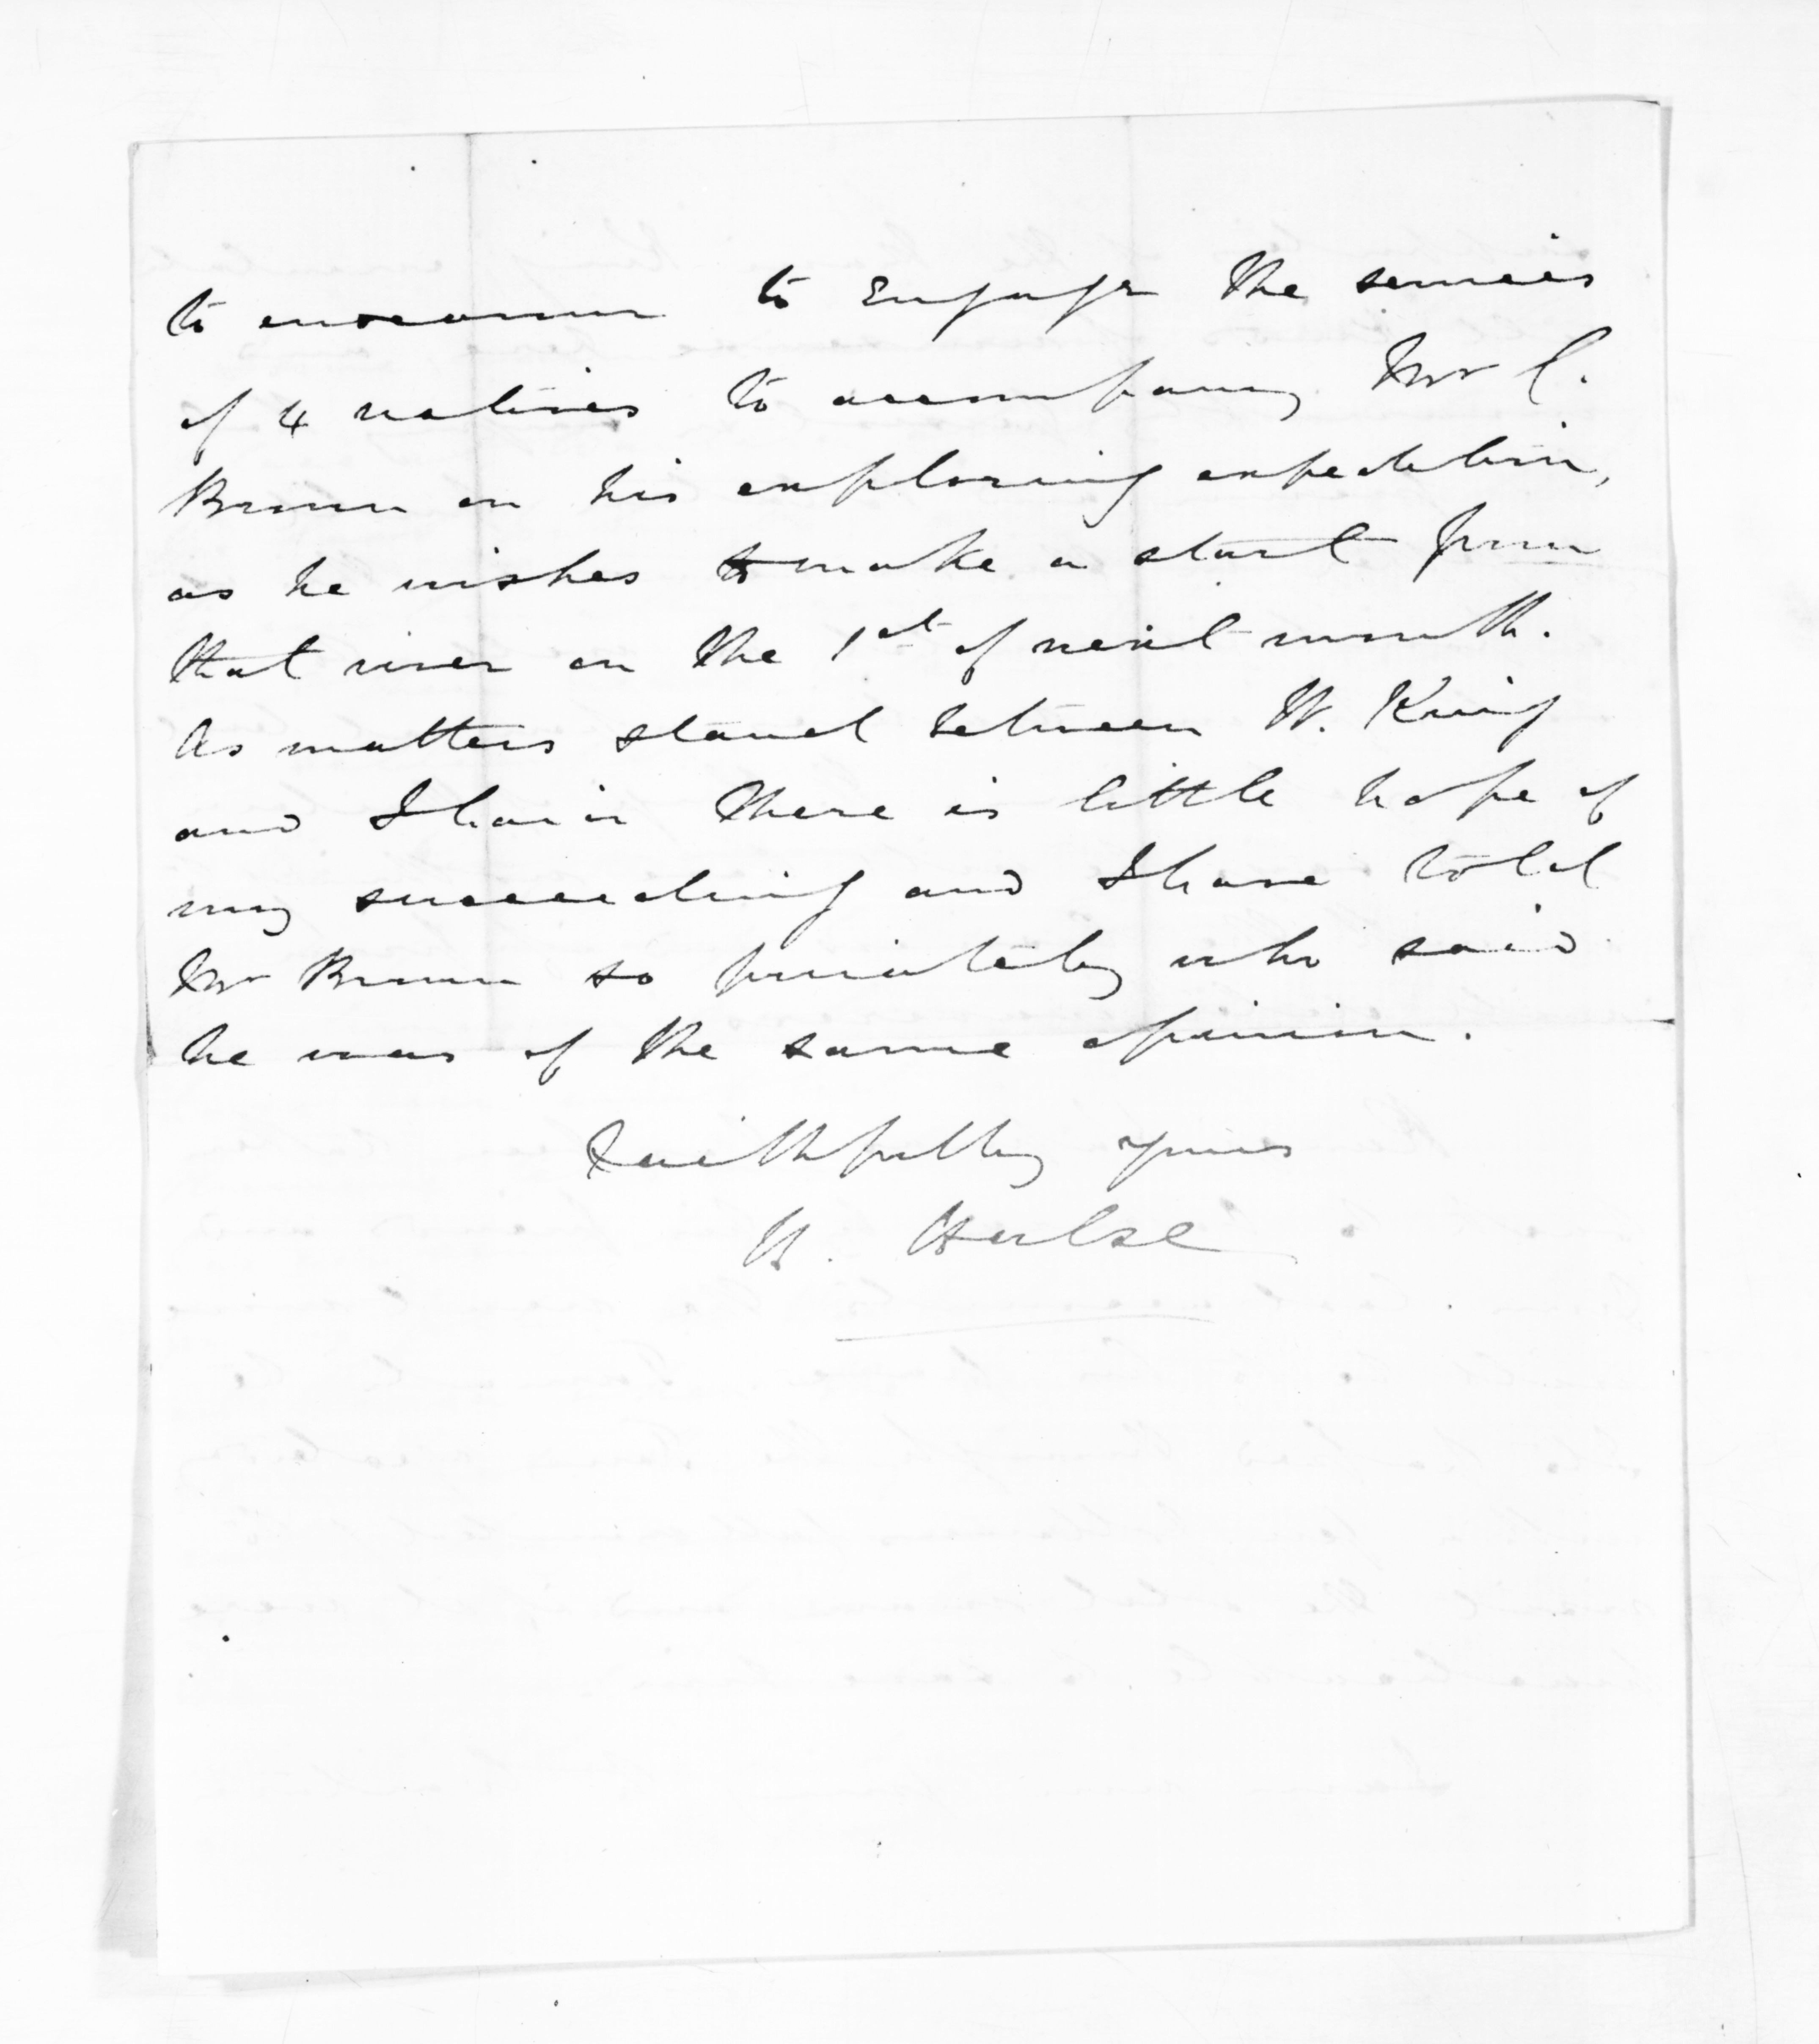 to endeavour to engage the services
of 4 natives to accompany Mr C.
Brown on his exploring expedition,
as he wishes to make a start from
that river on the 1st of next month.
As matters stand between W. King
and Ihaia there is little hope of
my succeeding and I have told
Mr Brown so privately who said
he was of the same opinion.
Faithfully yours
W. Halse